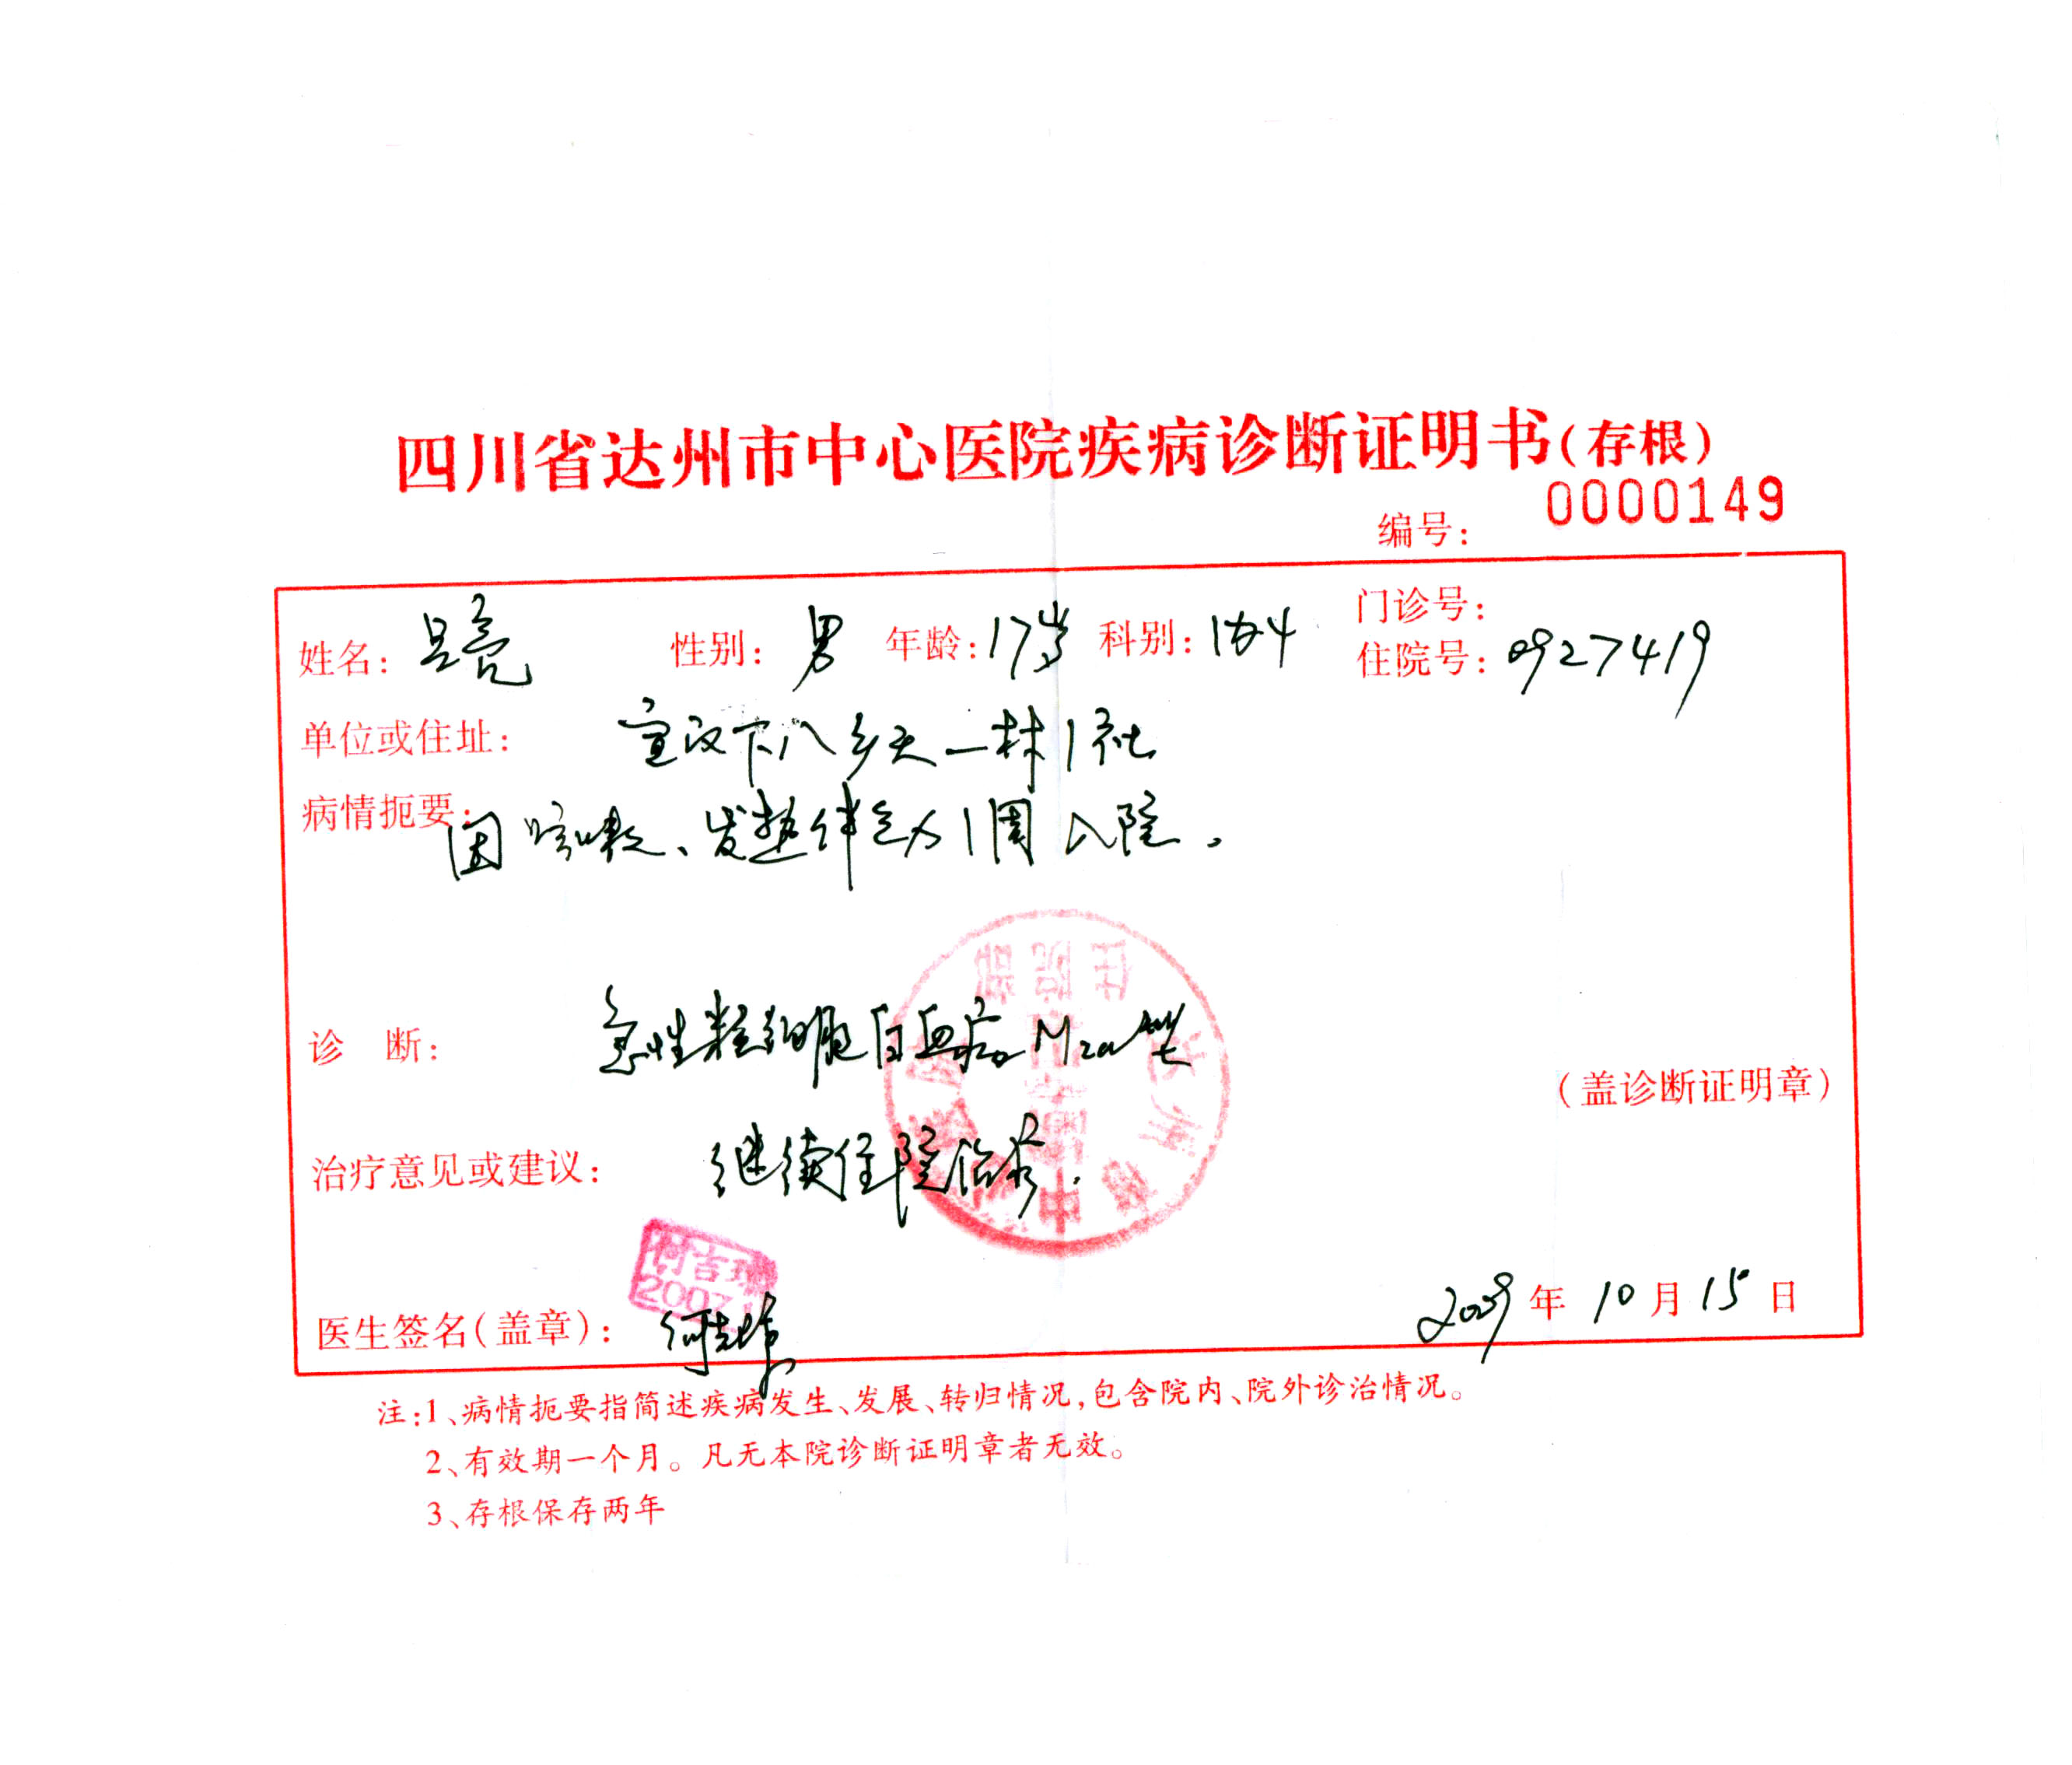 四川省达州市中心医院疾病诊断证明书(存根)
编号: 0000149
姓名: 吴亮 性别: 男 年龄: 17岁 科别: 协4 门诊号:
住院号: 0927419
单位或住址: 宣汉下八乡天一村1社
病情扼要: 因咳嗽、发热伴乏力1周入院。
诊 断: 急性粒细胞白血病M2a型
(盖诊断证明章)
治疗意见或建议: 继续住院治疗.
医生签名(盖章):
2009年10月15日
注:1、病情扼要指简述疾病发生、发展、转归情况,包含院内、院外诊治情况。
2、有效期一个月。凡无本院诊断证明章者无效。
3、存根保存两年
住院部